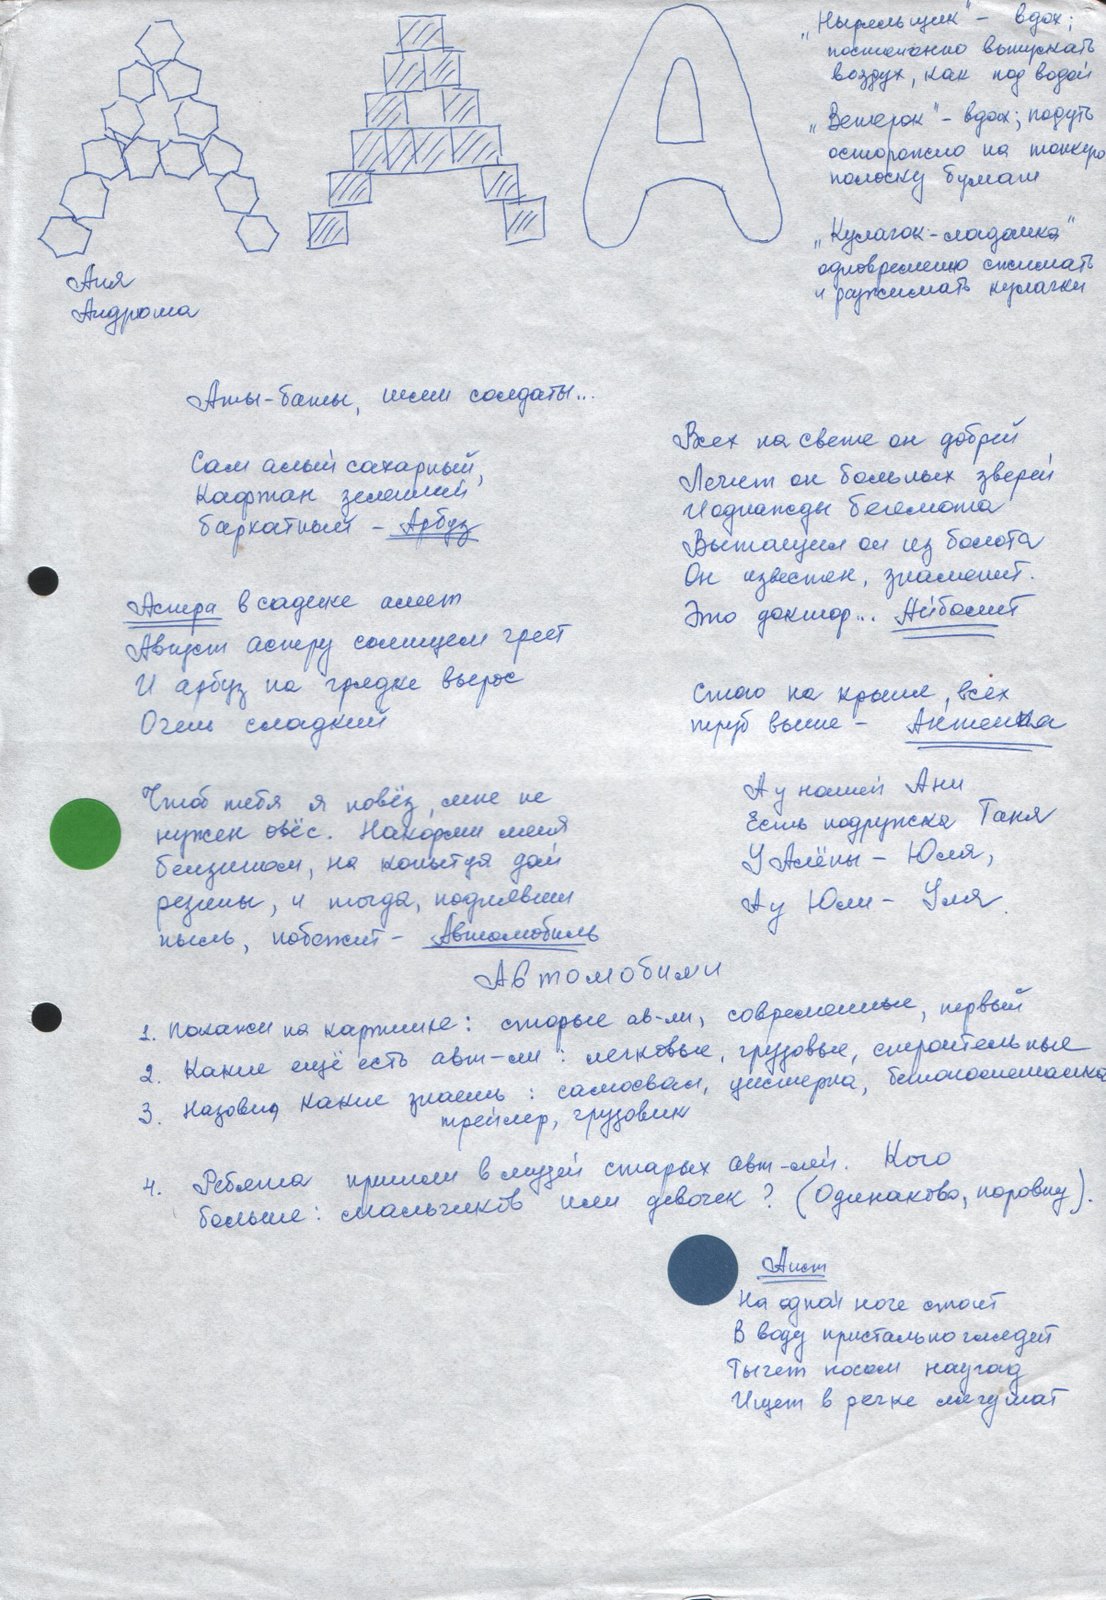 „Ныряльщик" – вдох;
постепенно выпускать
воздух, как под водой
„Ветерок" – вдох; подуть
осторожно на тонкую
полоску бумаги
„Кулачок-ладошка"
одновременно сжимать
и разжимать кулачки
Аня
Андрюша
Аты-баты, шли солдаты...
Сам алый сахарный,
Кафтан зеленый
бархатный – Арбуз
Астра в садике алеет
Август астру солнцем греет
И арбуз на грядке вырос
Очень сладкий
Чтоб тебя я повёз, мне не
нужен овёс. Накорми меня
бензином, на копытца дай
резины, и тогда, поднявши
пыль, побежит – Автомобиль
Всех на свете он добрей
Лечит он больных зверей
И однажды бегемота
Вытащил он из болота
Он известен, знаменит.
Это доктор... Айболит
Стою на крыше, всех
труб выше – Антенна
А у нашей Ани
Есть подружка Таня
У Алёны – Юля,
А у Юли – Уля.
Автомобили
1. Покажи на картинке: старые ав-ли, современные, первый
2. Какие ещё есть авт-ли: легковые, грузовые, строительные
3. Назови, какие знаешь: самосвал, цистерна, бетономешалка
трейлер, грузовик
4. Ребята пришли в музей старых авт-лей. Кого
больше: мальчиков или девочек? (Одинаково, поровну).
Аист
На одной ноге стоит
В воду пристально глядит
Тычет носом наугад
Ищет в речке лягушат